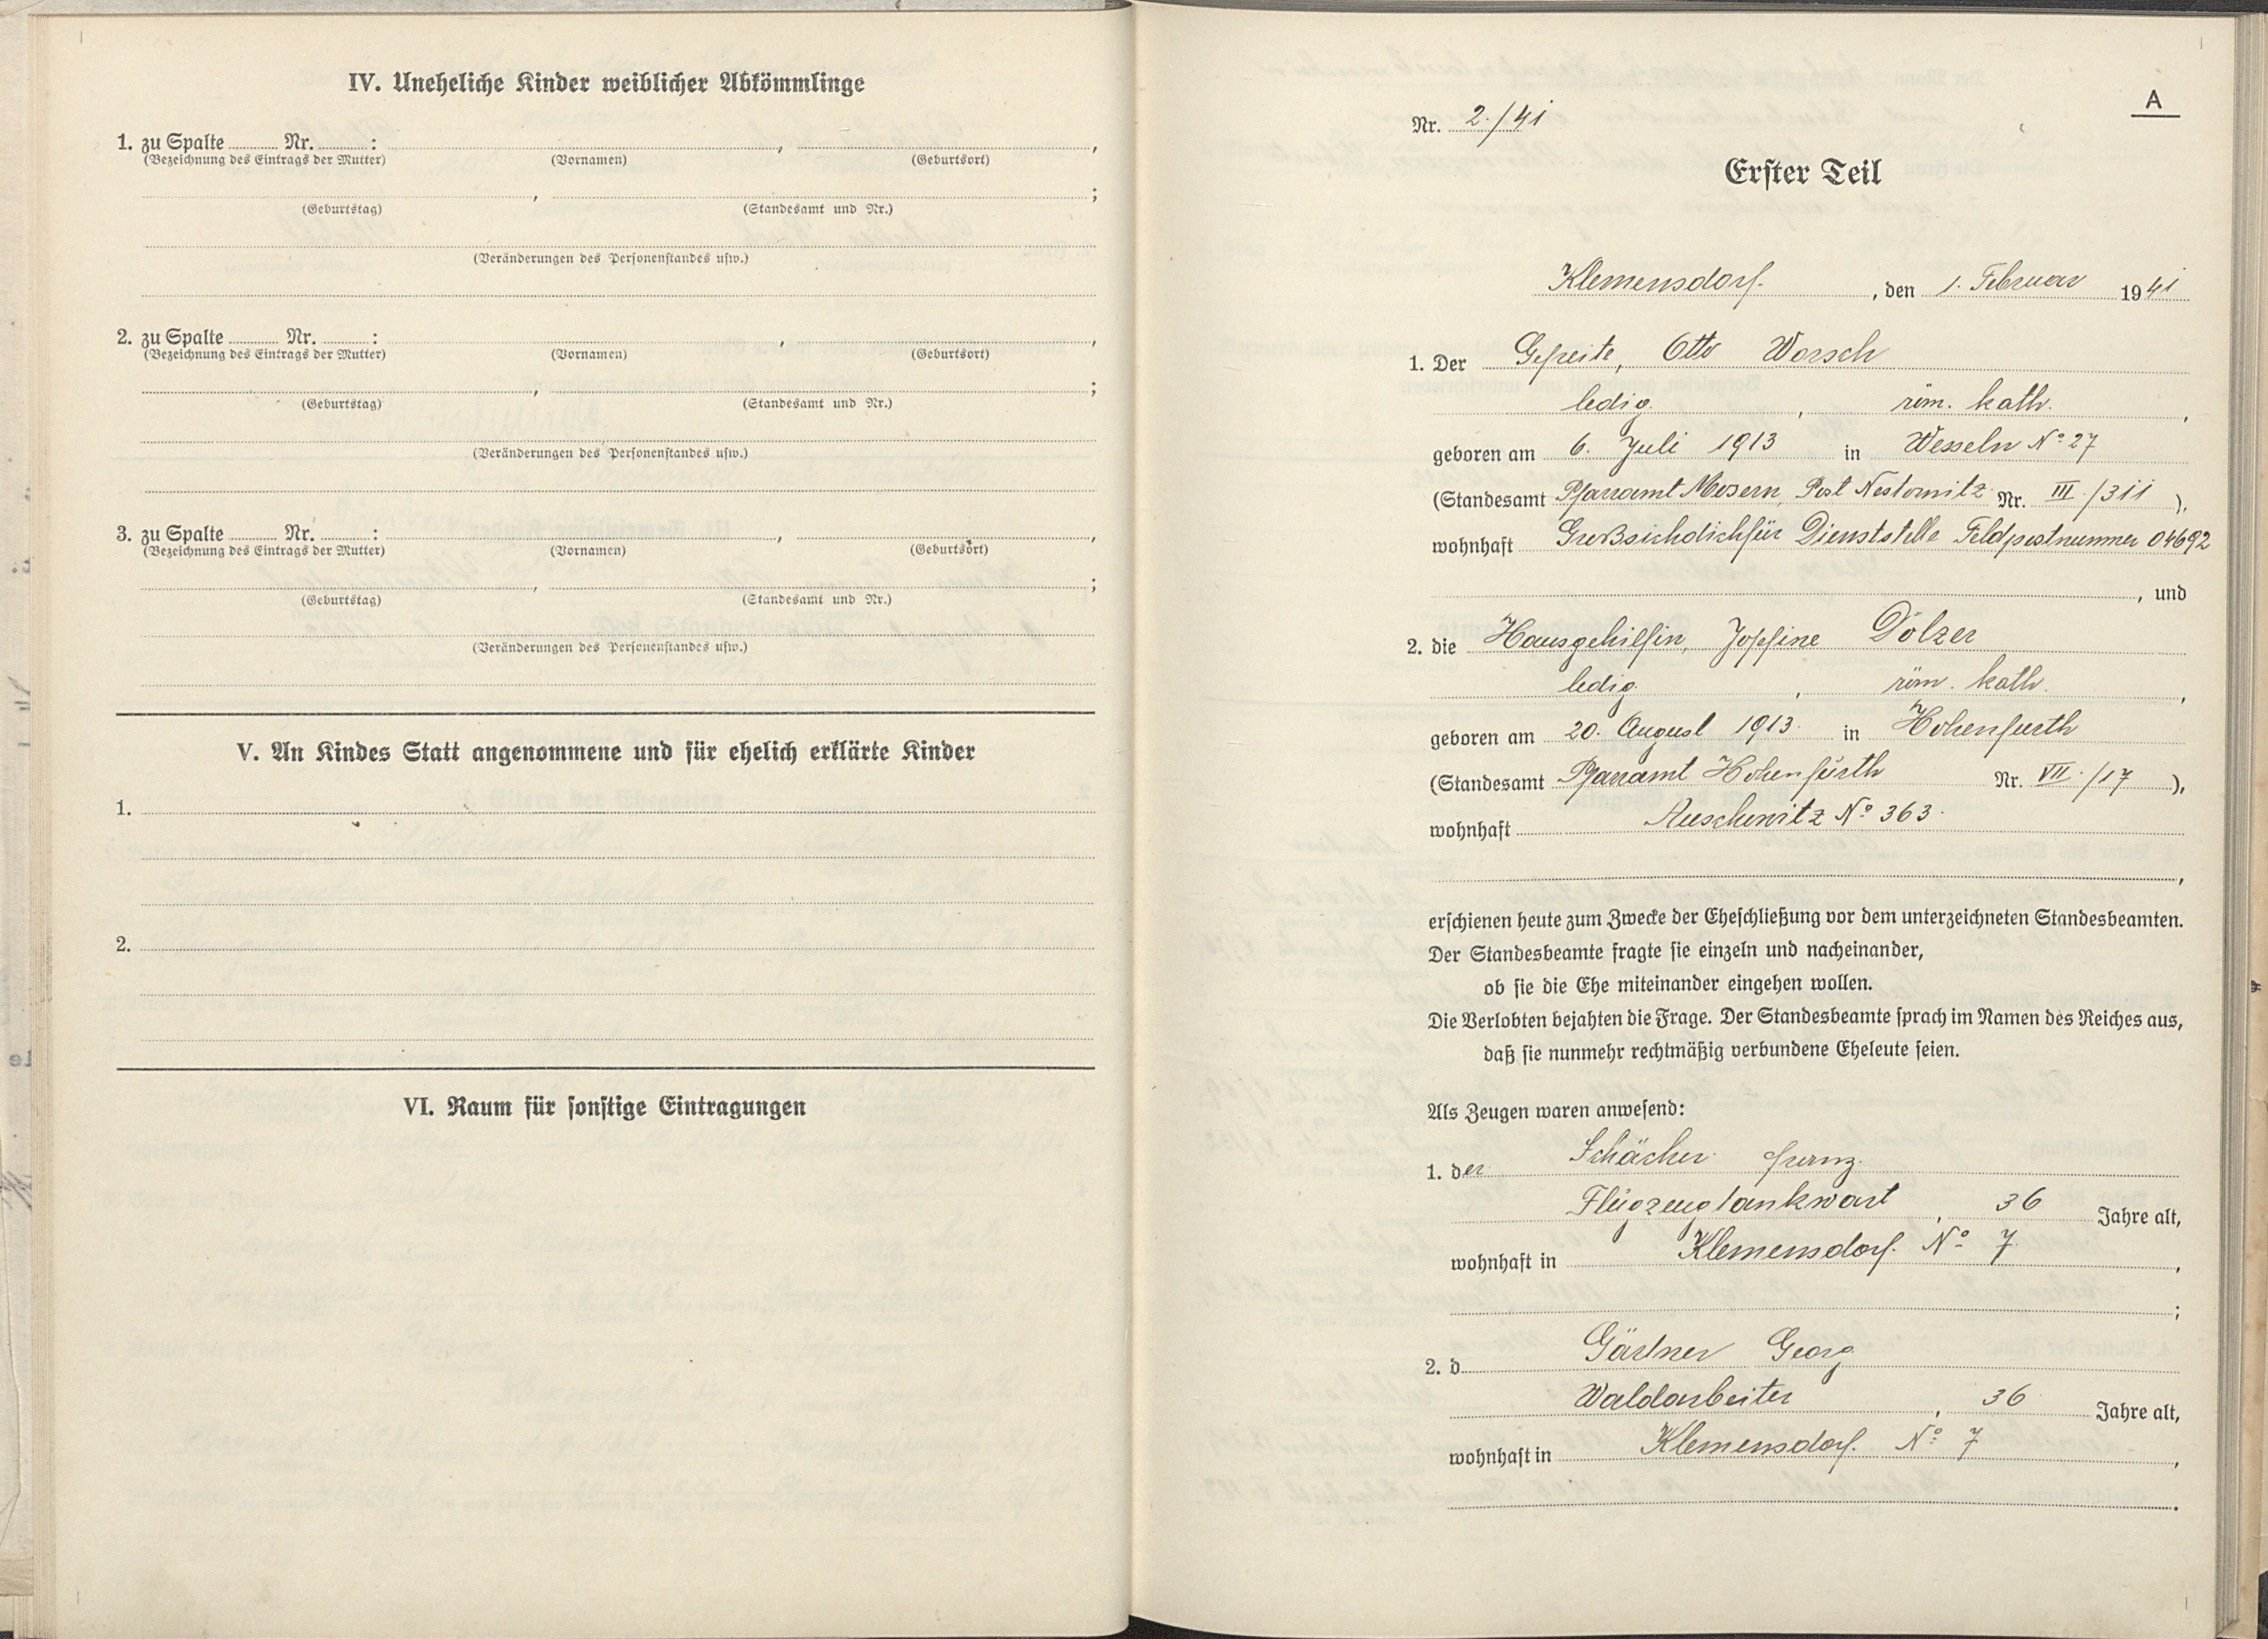 IV. Uneheliche Kinder weiblicher Abkömmlinge
1. zu Spalte Nr. : , ,
(Bezeichnung des Eintrags der Mutter) (Vornamen) (Geburtsort)
, ;
(Geburtstag) (Standesamt und Nr.)
(Veränderungen des Personenstandes usw.)
2. zu Spalte Nr. : , ,
(Bezeichnung des Eintrags der Mutter) (Vornamen) (Geburtsort)
, ;
(Geburtstag) (Standesamt und Nr.)
(Veränderungen des Personenstandes usw.)
3. zu Spalte Nr. : , ,
(Bezeichnung des Eintrags der Mutter) (Vornamen) (Geburtsort)
, ;
(Geburtstag) (Standesamt und Nr.)
(Veränderungen des Personenstandes usw.)
V. An Kindes Statt angenommene und für ehelich erklärte Kinder
1.
2.
VI. Raum für sonstige Eintragungen
A
Nr. 2./41
Erster Teil
Klemensdorf. , den 1. Februar 1941
1. Der Gefreite, Otto Worsch
ledig. , röm. kath. ,
geboren am 6. Juli 1913 in Wesseln No 27
(Standesamt Pfarramt Mosern, Post Nestomitz Nr. III./311 ),
wohnhaft Dienststelle Feldpostnummer 04692
, und
2. die Hausgehilfin, Josefine Dolzer
ledig. , röm. kath. ,
geboren am 20. August 1913. in Hohenfurth
(Standesamt Pfarramt Hohenfurth Nr. VII./17 ),
wohnhaft No 363.
,
erschienen heute zum Zwecke der Eheschließung vor dem unterzeichneten Standesbeamten.
Der Standesbeamte fragte sie einzeln und nacheinander,
ob sie die Ehe miteinander eingehen wollen.
Die Verlobten bejahten die Frage. Der Standesbeamte sprach im Namen des Reiches aus,
daß sie nunmehr rechtmäßig verbundene Eheleute seien.
Als Zeugen waren anwesend:
1. der Schächer Franz.
Flugzeugtankwart , 36 Jahre alt,
wohnhaft in Klemensdorf. No 7 ,
;
2. d Gärtner Georg
Waldarbeiter , 36 Jahre alt,
wohnhaft in Klemensdorf. No 7 ,
.